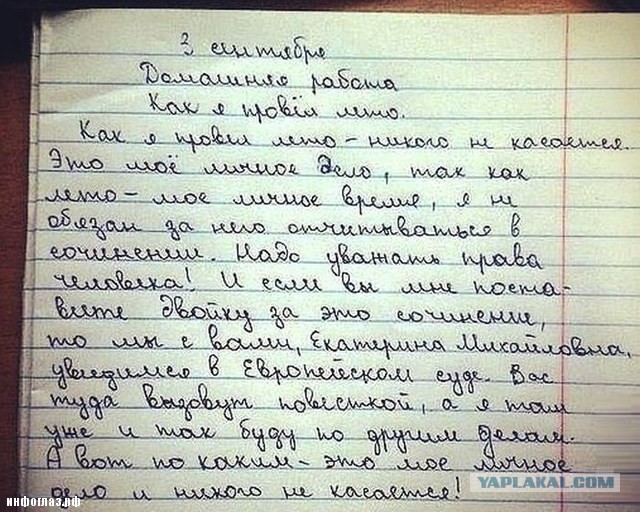 3 сентября
Домашняя работа
Как я провёл лето.
Как я провел лето – никого не касается.
Это моё личное дело, так как
лето – мое личное время, я не
обязан за него отчитываться в
сочинении. Надо уважать права
человека! И если вы мне поста-
вите двойку за это сочинение,
то мы с вами, Екатерина Михайловна,
увидимся в Европейском суде. Вас
туда вызовут повесткой, а я там
уже и так буду по другим делам.
А вот по каким – это мое личное
дело и никого не касается!
YAPLAKAL.COM
инфоглаз.рф